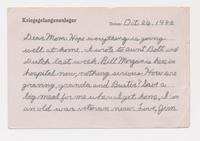 Kriegsgefangenenlager Datum: Oct. 24, 1942
Dear Mom: Hope everything is going
well at home. I wrote to aunt Dell and
last week. Bill Morgan is here in
hospital now, nothing serious. How are
granny, granda and Buster? Save a
big meal for me when I get home, I'm
an old war veteran now. Love, Jim